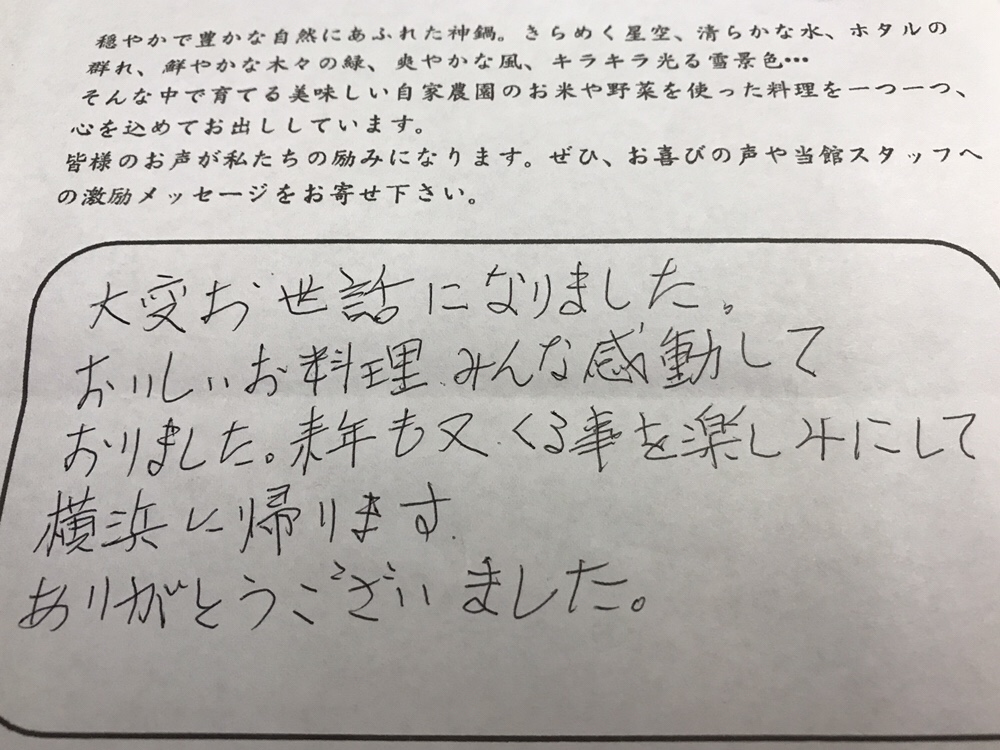 穏やかで豊かな自然にあふれた神鍋。きらめく星空、清らかな水、ホタルの
群れ、鮮やかな木々の緑、爽やかな風、キラキラ光る雪景色…
そんな中で育てる美味しい自家農園のお米や野菜を使った料理を一つ一つ、
心を込めてお出ししています。
皆様のお声が私たちの励みになります。ぜひ、お喜びの声や当館スタッフへ
の激励メッセージをお寄せ下さい。
大変お世話になりました。
おいしいお料理、みんな感動して
おりました。来年も又、くる事を楽しみにして
横浜に帰ります。
ありがとうございました。